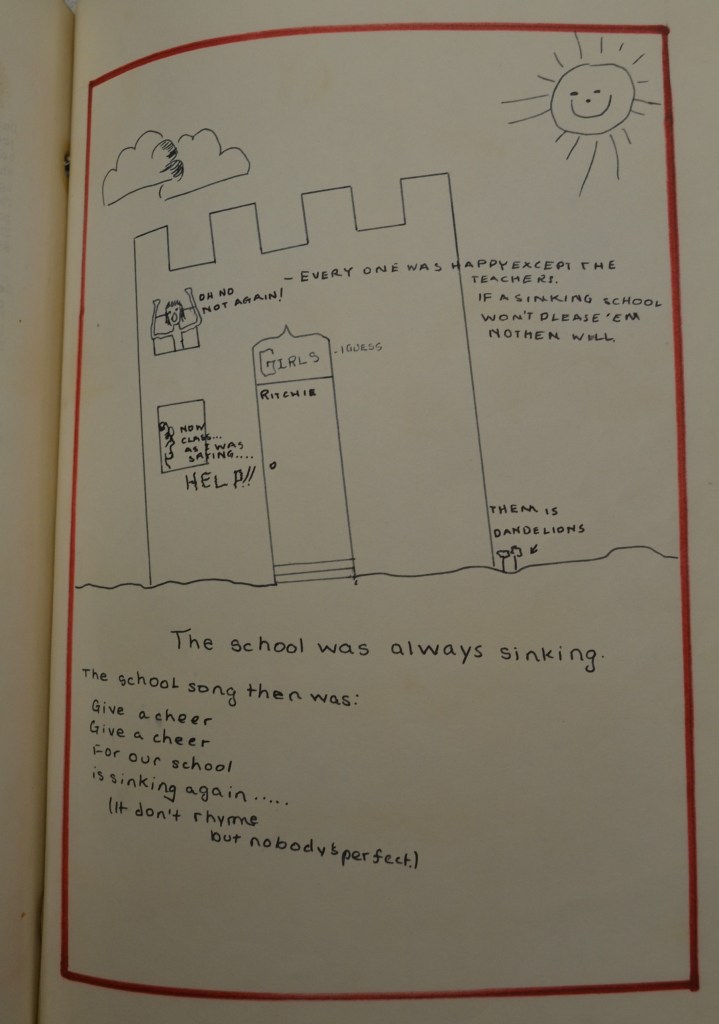 OH NO
NOT AGAIN!
- EVERY ONE WAS HAPPY EXCEPT THE
TEACHERS.
IF A SINKING SCHOOL
WON'T PLEASE 'EM
NOTHEN WILL.
GIRLS
- I GUESS
RITCHIE
NOW
CLASS...
AS I WAS
SAYING....
HELP!!
THEM IS
DANDELIONS
The school was always sinking.
The school song then was:
Give a cheer
Give a cheer
For our school
is sinking again.....
(It don't rhyme
but nobody's perfect.)